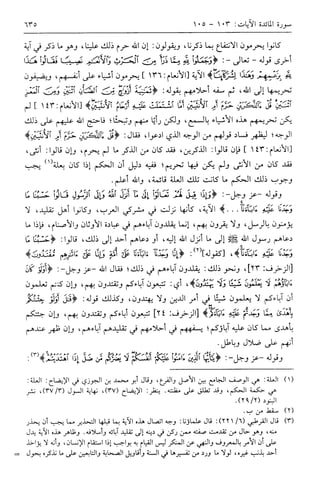 سورة المائدة الآيات: ١٠٣ - ١٠٥ ٦٣٥
كانوا يحرمون الانتفاع بما ذكرنا، ويقولون: إن الله حرم ذلك علينا، وهو ما ذكر في آية
أخرى قوله - تعالى -: ﴿وَجَعَلُوا لِلَّهِ مِمَّا ذَرَأَ مِنَ الْحَرْثِ وَالْأَنْعَامِ نَصِيبًا فَقَالُوا هَذَا
لِلَّهِ بِزَعْمِهِمْ وَهَذَا لِشُرَكَائِنَا﴾ الآية [الأنعام: ١٣٦] يحرمون أشياء على أنفسهم، ويضيفون
تحريمها إلى الله، ثم سفه أحلامهم بقوله:
[الأنعام: ١٤٣] لم
يكن تحريمهم هذه الأشياء بالسمع، ولكن رأيًا منهم وتبحثًا؛ فاحتج الله عليهم على ذلك
الوجه؛ ليظهر فساد قولهم من الوجه الذي ادعوا، فقال:
[الأنعام: ١٤٣] فإن قالوا: الذكرين، فقد كان من الذكر ما لم يحرم، وإن قالوا: أنثى،
فقد كان من الأنثى ولم يكن فيها تحريم؛ ففيه دليل أن الحكم إذا كان بعلة(١) يجب
وجوب ذلك الحكم ما كانت تلك العلة قائمة، والله أعلم.
وقوله -عز وجل-: ﴿وَإِذَا قِيلَ لَهُمْ تَعَالَوْا إِلَى مَا أَنزَلَ اللَّهُ وَإِلَى الرَّسُولِ قَالُوا حَسْبُنَا مَا
وَجَدْنَا عَلَيْهِ آبَاءَنَا ...﴾ الآية، كأنها نزلت في مشركي العرب، وكانوا أهل تقليد، لا
يؤمنون بالرسل، ولا يقرون بهم، إنما يقلدون آباءهم في عبادة الأوثان والأصنام، فإذا ما
دعاهم رسول الله ﷺ إلى ما أنزل الله إليه، أو دعاهم أحد إلى ذلك، قالوا: ﴿حَسْبُنَا مَا
وَجَدْنَا عَلَيْهِ آبَاءَنَا﴾ [كقوله](٢):
[الزخرف: ٢٣]، ونحو ذلك: يقلدون آباءهم في ذلك؛ فقال الله -عز وجل-: ﴿أَوَلَوْ كَانَ
آبَاؤُهُمْ لَا يَعْلَمُونَ شَيْئًا وَلَا يَهْتَدُونَ﴾، أي: تتبعون آباءكم وتقتدون بهم، وإن كنتم تعلمون
أن آباءكم لا يعلمون شيئًا في أمر الدين ولا يهتدون، وكذلك قوله: ﴿قُلْ أَوَلَوْ جِئْتُكُمْ
بِأَهْدَى مِمَّا وَجَدْتُمْ عَلَيْهِ آبَاءَكُمْ﴾ [الزخرف: ٢٤] تتبعون آباءكم وتقتدون بهم، وإن جئتكم
بأهدى مما كان عليه آباؤكم؛ يسفههم في أحلامهم في تقليدهم آباءهم، وإن ظهر عندهم
أنهم على ضلال وباطل.
وقوله -عز وجل-: ﴿يَا أَيُّهَا الَّذِينَ آمَنُوا عَلَيْكُمْ أَنفُسَكُمْ لَا يَضُرُّكُمْ مَنْ ضَلَّ إِذَا اهْتَدَيْتُمْ﴾(٣):
(١) العلة: هي الوصف الجامع بين الأصل والفرع، وقال أبو محمد بن الجوزي في الإيضاح: العلة:
هي حكمة الحكم، وقد تطلق على مظنته. ينظر: الإيضاح (٣٧)، نهاية السول (٣٧/٣)، نشر
البنود (٢٩/٢).
(٢) سقط من ب.
(٣) قال القرطبي (٢٢١/٦): قال علماؤنا: وجه اتصال هذه الآية بما قبلها التحذير مما يجب أن يحذر
منه، وهو حال من تقدمت صفته ممن ركن في دينه إلى تقليد آبائه وأسلافه. وظاهر هذه الآية يدل
على أن الأمر بالمعروف والنهي عن المنكر ليس القيام به بواجب إذا استقام الإنسان، وأنه لا يؤاخذ
أحد بذنب غيره، لولا ما ورد من تفسيرها في السنة وأقاويل الصحابة والتابعين على ما نذكره بحول